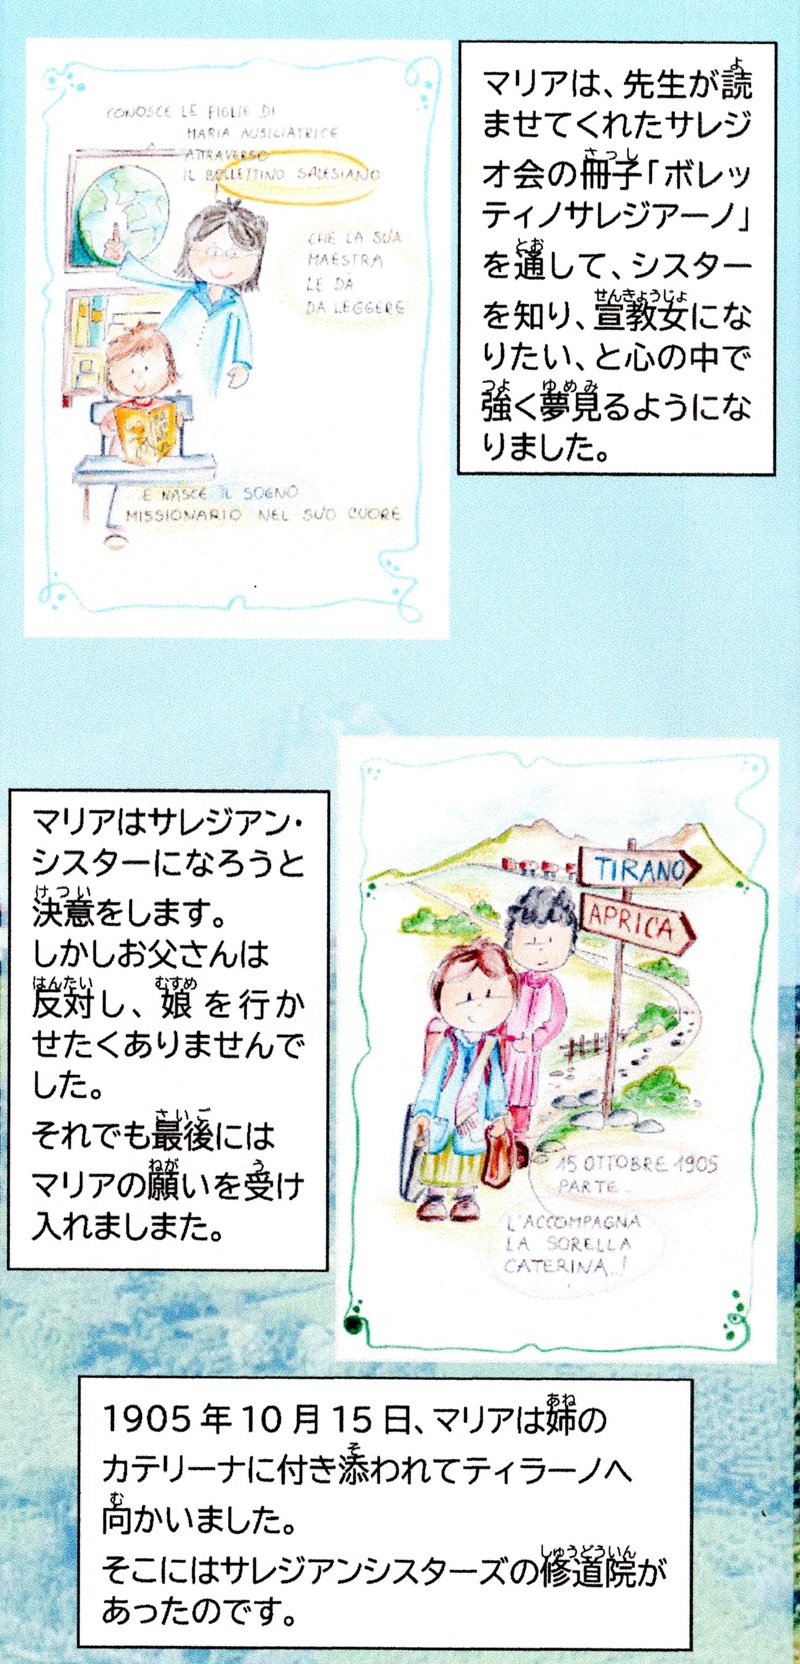 CONOSCE LE FIGLIE DI
MARIA AUSILIATRICE
ATTRAVERSO
IL BOLLETTINO SALESIANO
CHE LA SUA
MAESTRA
LE DÀ
DA LEGGERE
E NASCE IL SOGNO
MISSIONARIO NEL SUO CUORE
マリアは、先生が読
ませてくれたサレジ
オ会の冊子「ボレッ
ティノサレジアーノ」
を通して、シスター
を知り、宣教女にな
りたい、と心の中で
強く夢見るようにな
りました。
マリアはサレジアン・
シスターになろうと
決意をします。
しかしお父さんは
反対し、娘を行か
せたくありませんで
した。
それでも最後には
マリアの願いを受け
入れましまた。
TIRANO
APRICA
15 OTTOBRE 1905
PARTE..
L'ACCOMPAGNA
LA SORELLA
CATERINA..!
1905年10月15日、マリアは姉の
カテリーナに付き添われてティラーノへ
向かいました。
そこにはサレジアンシスターズの修道院が
あったのです。